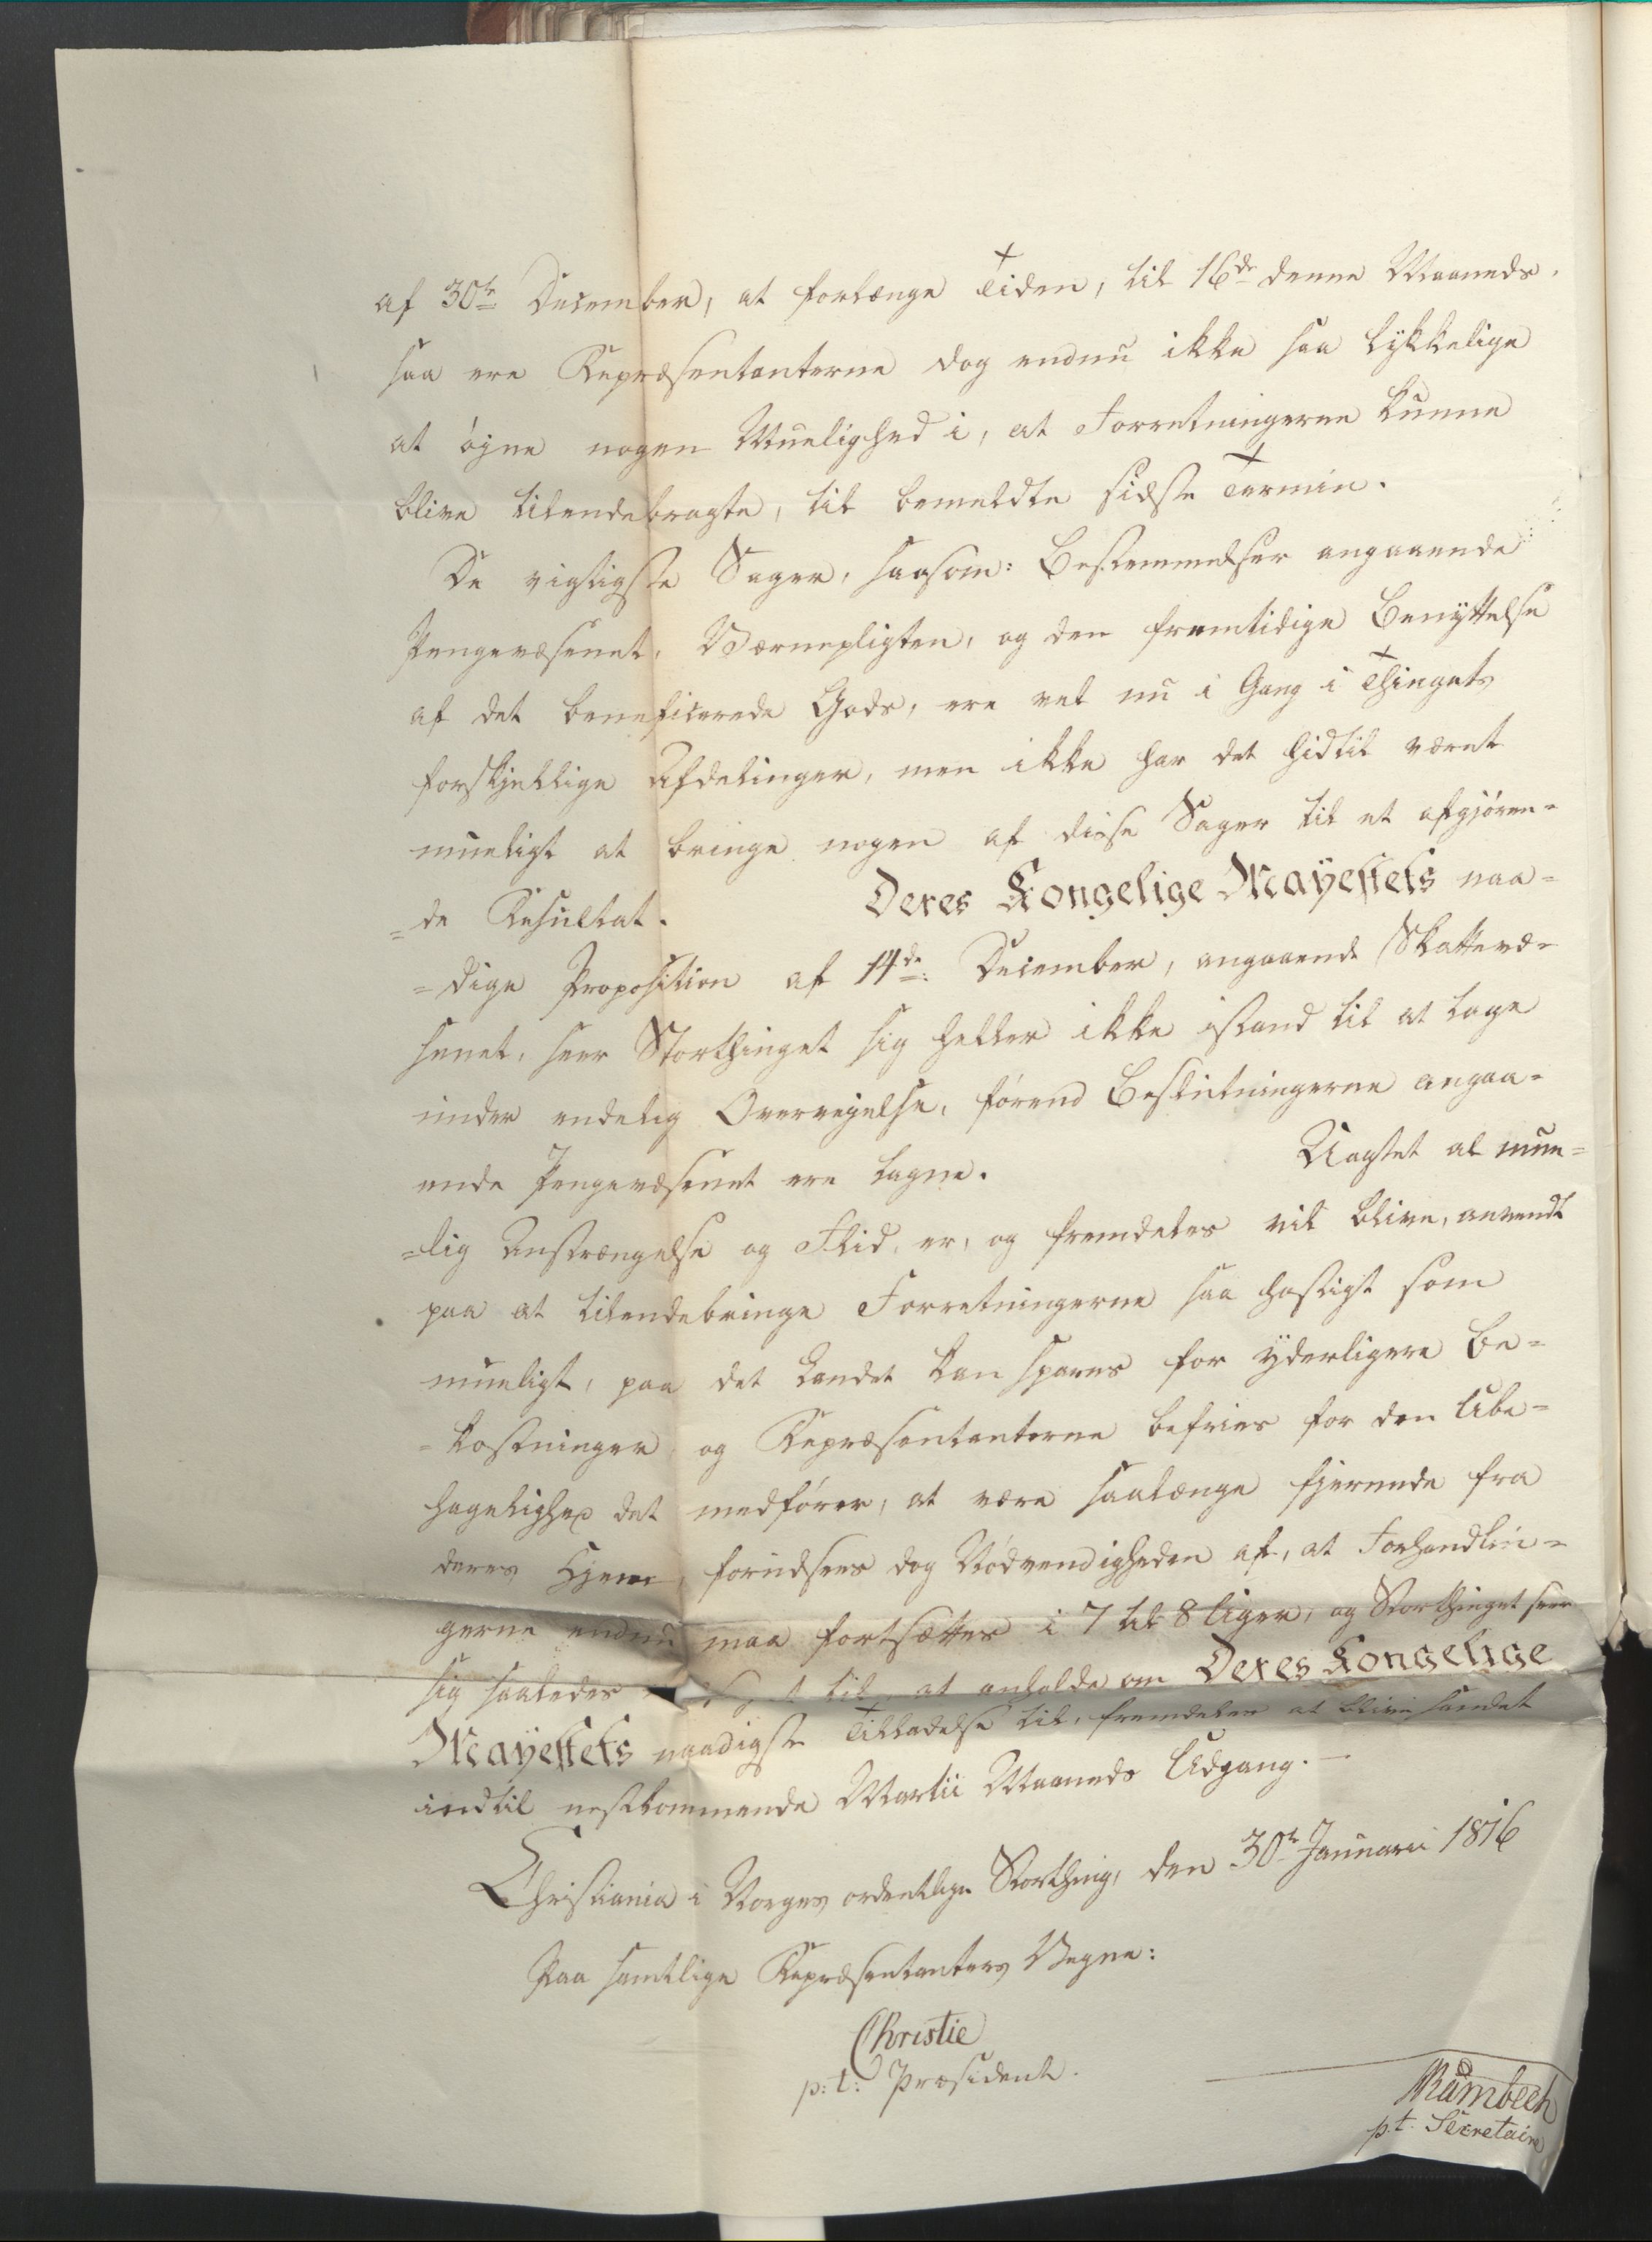 af 30te December, at forlænge Tiden, til 16de denne Maaneds,
saa ere Repræsentanterne dog endnu ikke saa lykkelige
at øjne nogen Muelighed i, at Forretningerne kunne
blive tilendebragte, til bemeldte sidste Termin.
De vigtigste Sager, saasom: Bestemmelser angaaende
Pengevæsenet, Værnepligten, og den fremtidige Benyttelse
af det beneficerede Gods, ere vel nu i Gang i Thingets
forskjellige Afdelinger, men ikke har det hidtil været
mueligt at bringe nogen af disse Sager til et afgjøren=
=de Resultat. Deres Kongelige Mayestets naa=
=dige Proposition af 14de: December, angaaende Skattevæ=
senet, seer Storthinget sig heller ikke istand til at tage
under endelig Overvejelse, førend Beslutningerne angaa=
ende Pengevæsenet ere tagne. Uagtet al mue=
=lig Anstrængelse og Flid, er, og fremdeles vil blive, anvendt
paa at tilendebringe Forretningerne saa hastigt som
mueligt, paa det Landet kan spares for yderligere Be=
=kostninger og Repræsentanterne befries for den Ube=
hagelighed det medfører, at være saalænge fjernede fra
deres Hjem, forudsees dog Nødvendigheden af, at Forhandlin=
gerne endnu maa fortsættes i 7 til 8 Uger, og Storthinget seer
sig saaledes til at anholde om Deres Kongelige
Mayestets naadigste Tilladelse til, fremdeles at blive samlet
indtil nestkommende Martii Maaneds Udgang.—
Christiania i Norges ordentlige Storthing, den 30te Januarii 1816
Paa samtlige Repræsentanters Vegne:
Christie
p: t: Præsident.
Rambech
p. t. Secretaire